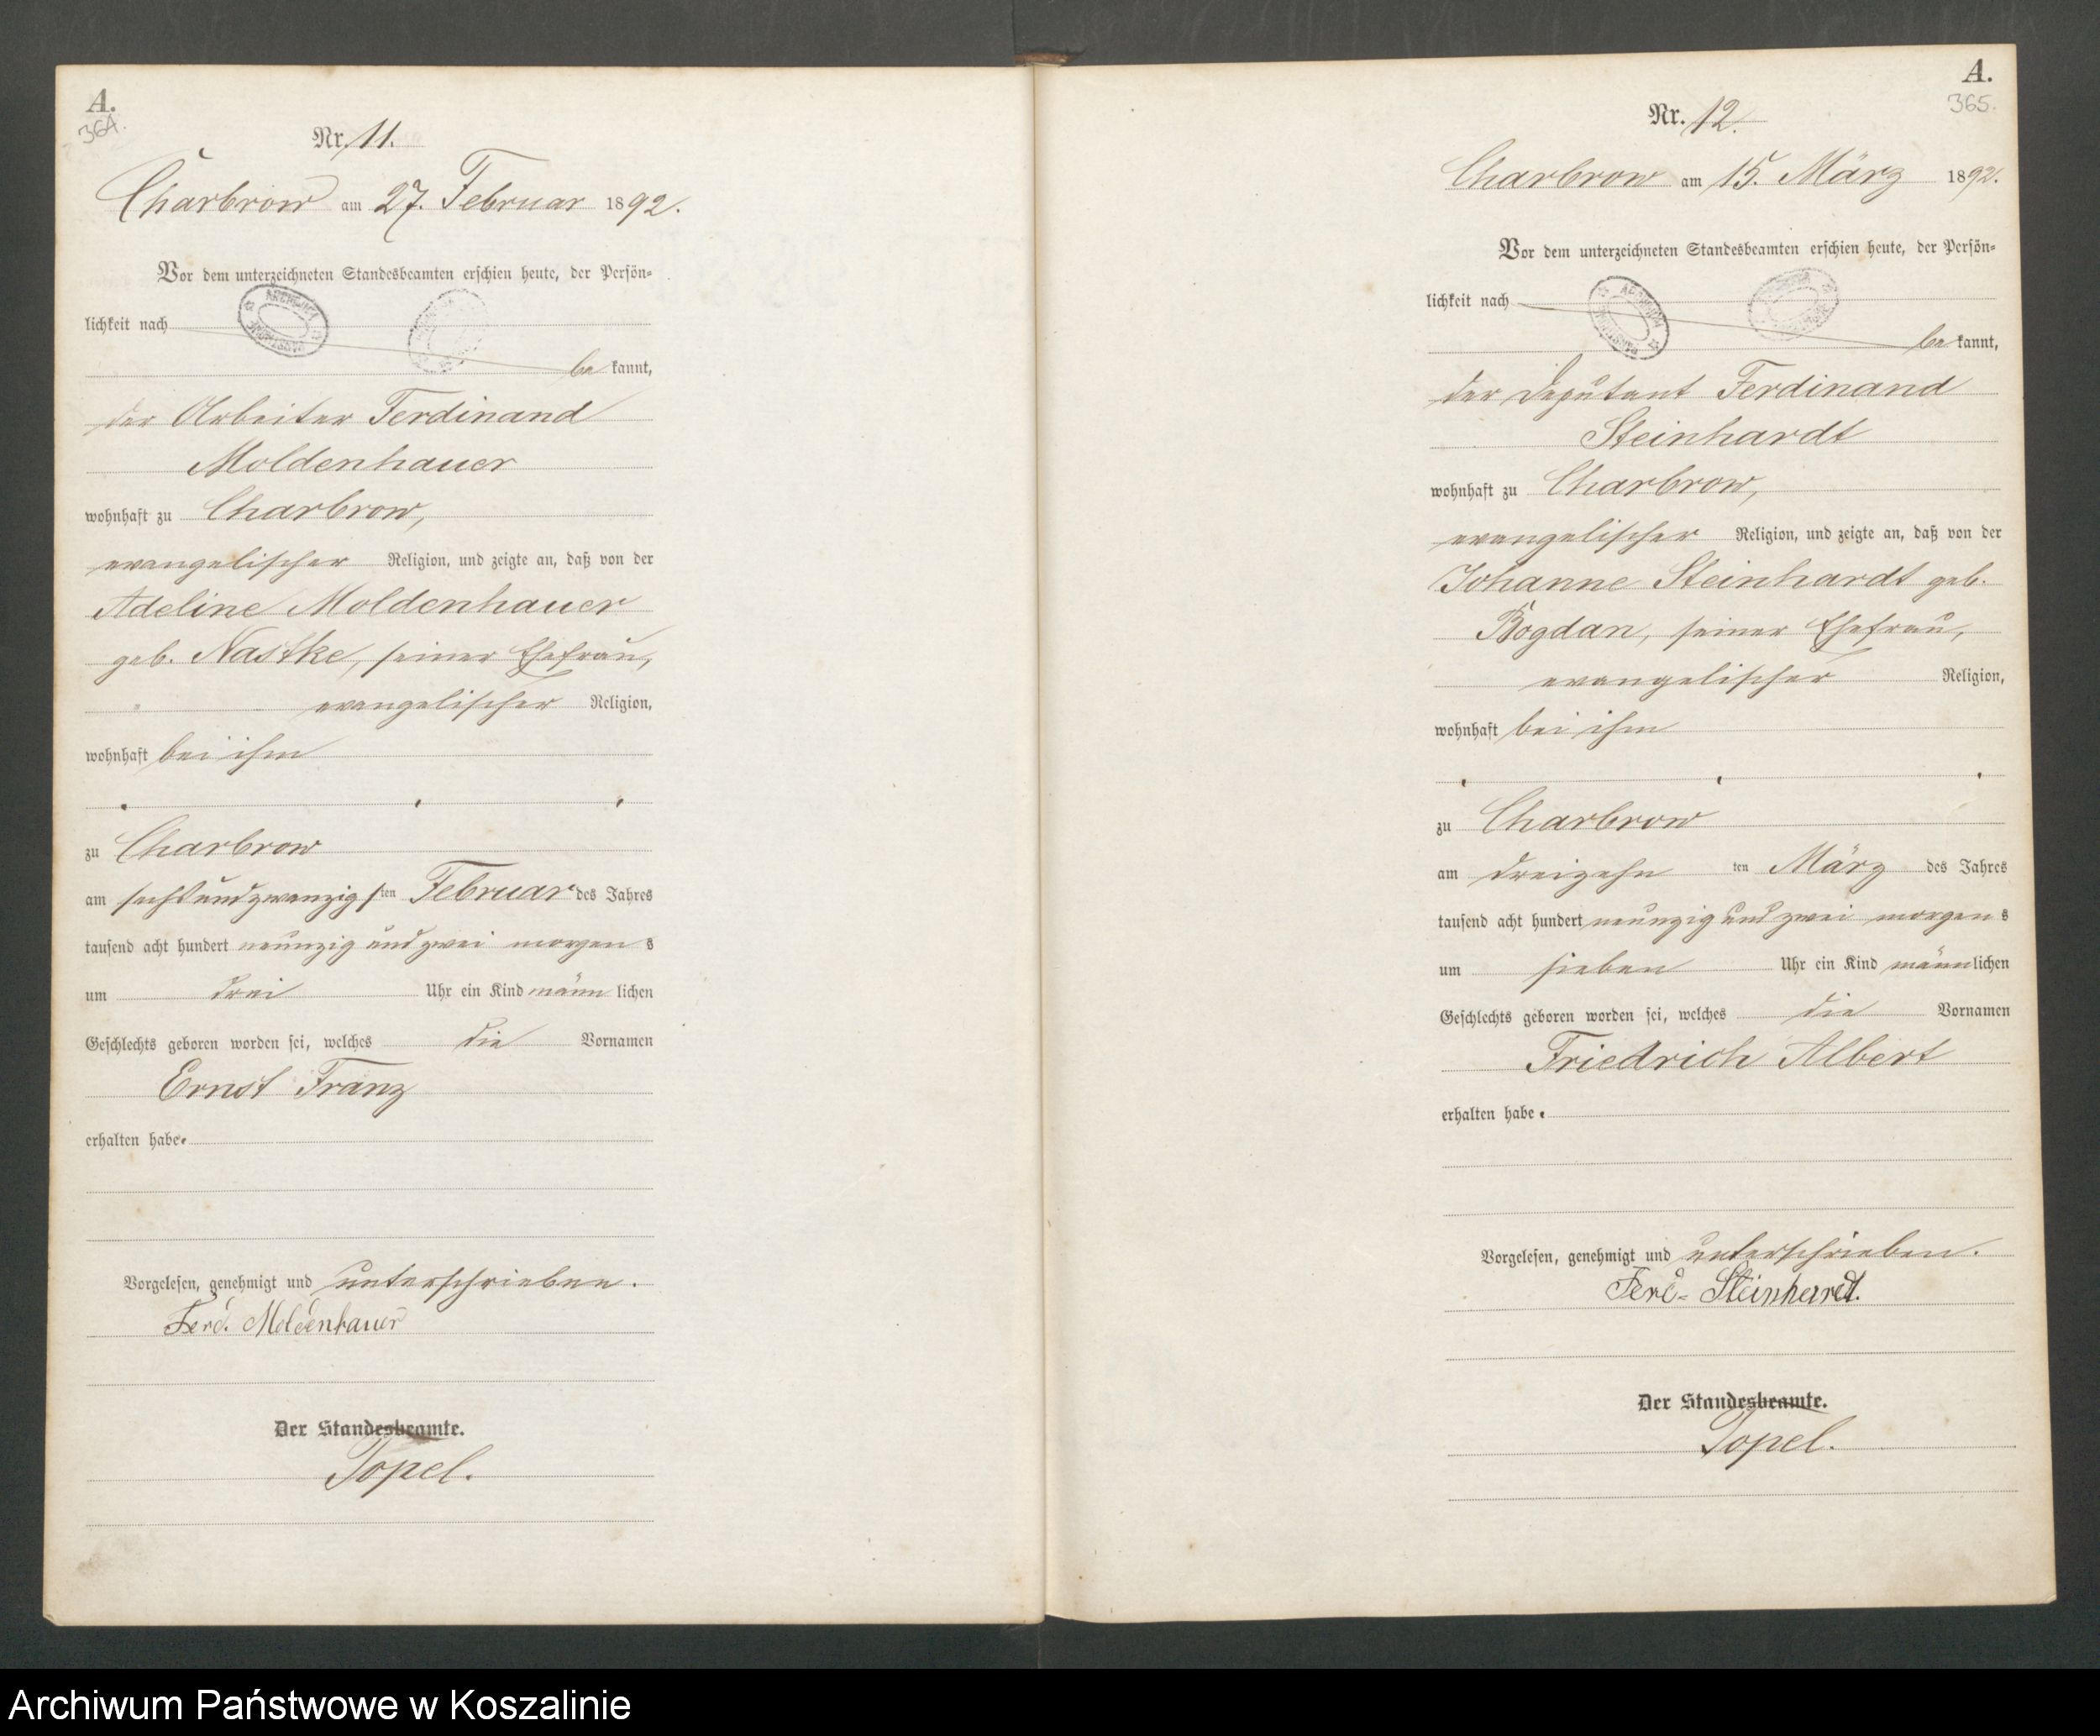 A.
364.
Nr. 11.
Charbrow am 27. Februar 1892.
Vor dem unterzeichneten Standesbeamten erschien heute, der Persön-
lichkeit nach
be kannt,
der Arbeiter Ferdinand
Moldenhauer
wohnhaft zu Charbrow,
evangelischer Religion, und zeigte an, daß von der
Adeline Moldenhauer
geb. Nastke, seiner Ehefrau,
evangelischer Religion,
wohnhaft bei ihm
zu Charbrow
am sechsundzwanzigsten Februar des Jahres
tausend acht hundert neunzig und zwei morgen s
um drei Uhr ein Kind männ lichen
Geschlechts geboren worden sei, welches die Vornamen
Ernst Franz
erhalten habe.
Vorgelesen, genehmigt und unterschrieben.
Ferd. Moldenhauer
Der Standesbeamte.
Topel.
A.
365.
Nr. 12.
Charbrow am 15. März 1892.
Vor dem unterzeichneten Standesbeamten erschien heute, der Persön-
lichkeit nach
be kannt,
der Deputant Ferdinand
Steinhardt
wohnhaft zu Charbrow,
evangelischer Religion, und zeigte an, daß von der
Johanne Steinhardt geb.
Bogdan, seiner Ehefrau,
evangelischer Religion,
wohnhaft bei ihm
zu Charbrow
am dreizehn ten März des Jahres
tausend acht hundert neunzig und zwei morgen s
um sieben Uhr ein Kind männlichen
Geschlechts geboren worden sei, welches die Vornamen
Friedrich Albert
erhalten habe.
Vorgelesen, genehmigt und unterschrieben.
Ferd. Steinhardt.
Der Standesbeamte.
Topel.
Archiwum Państwowe w Koszalinie